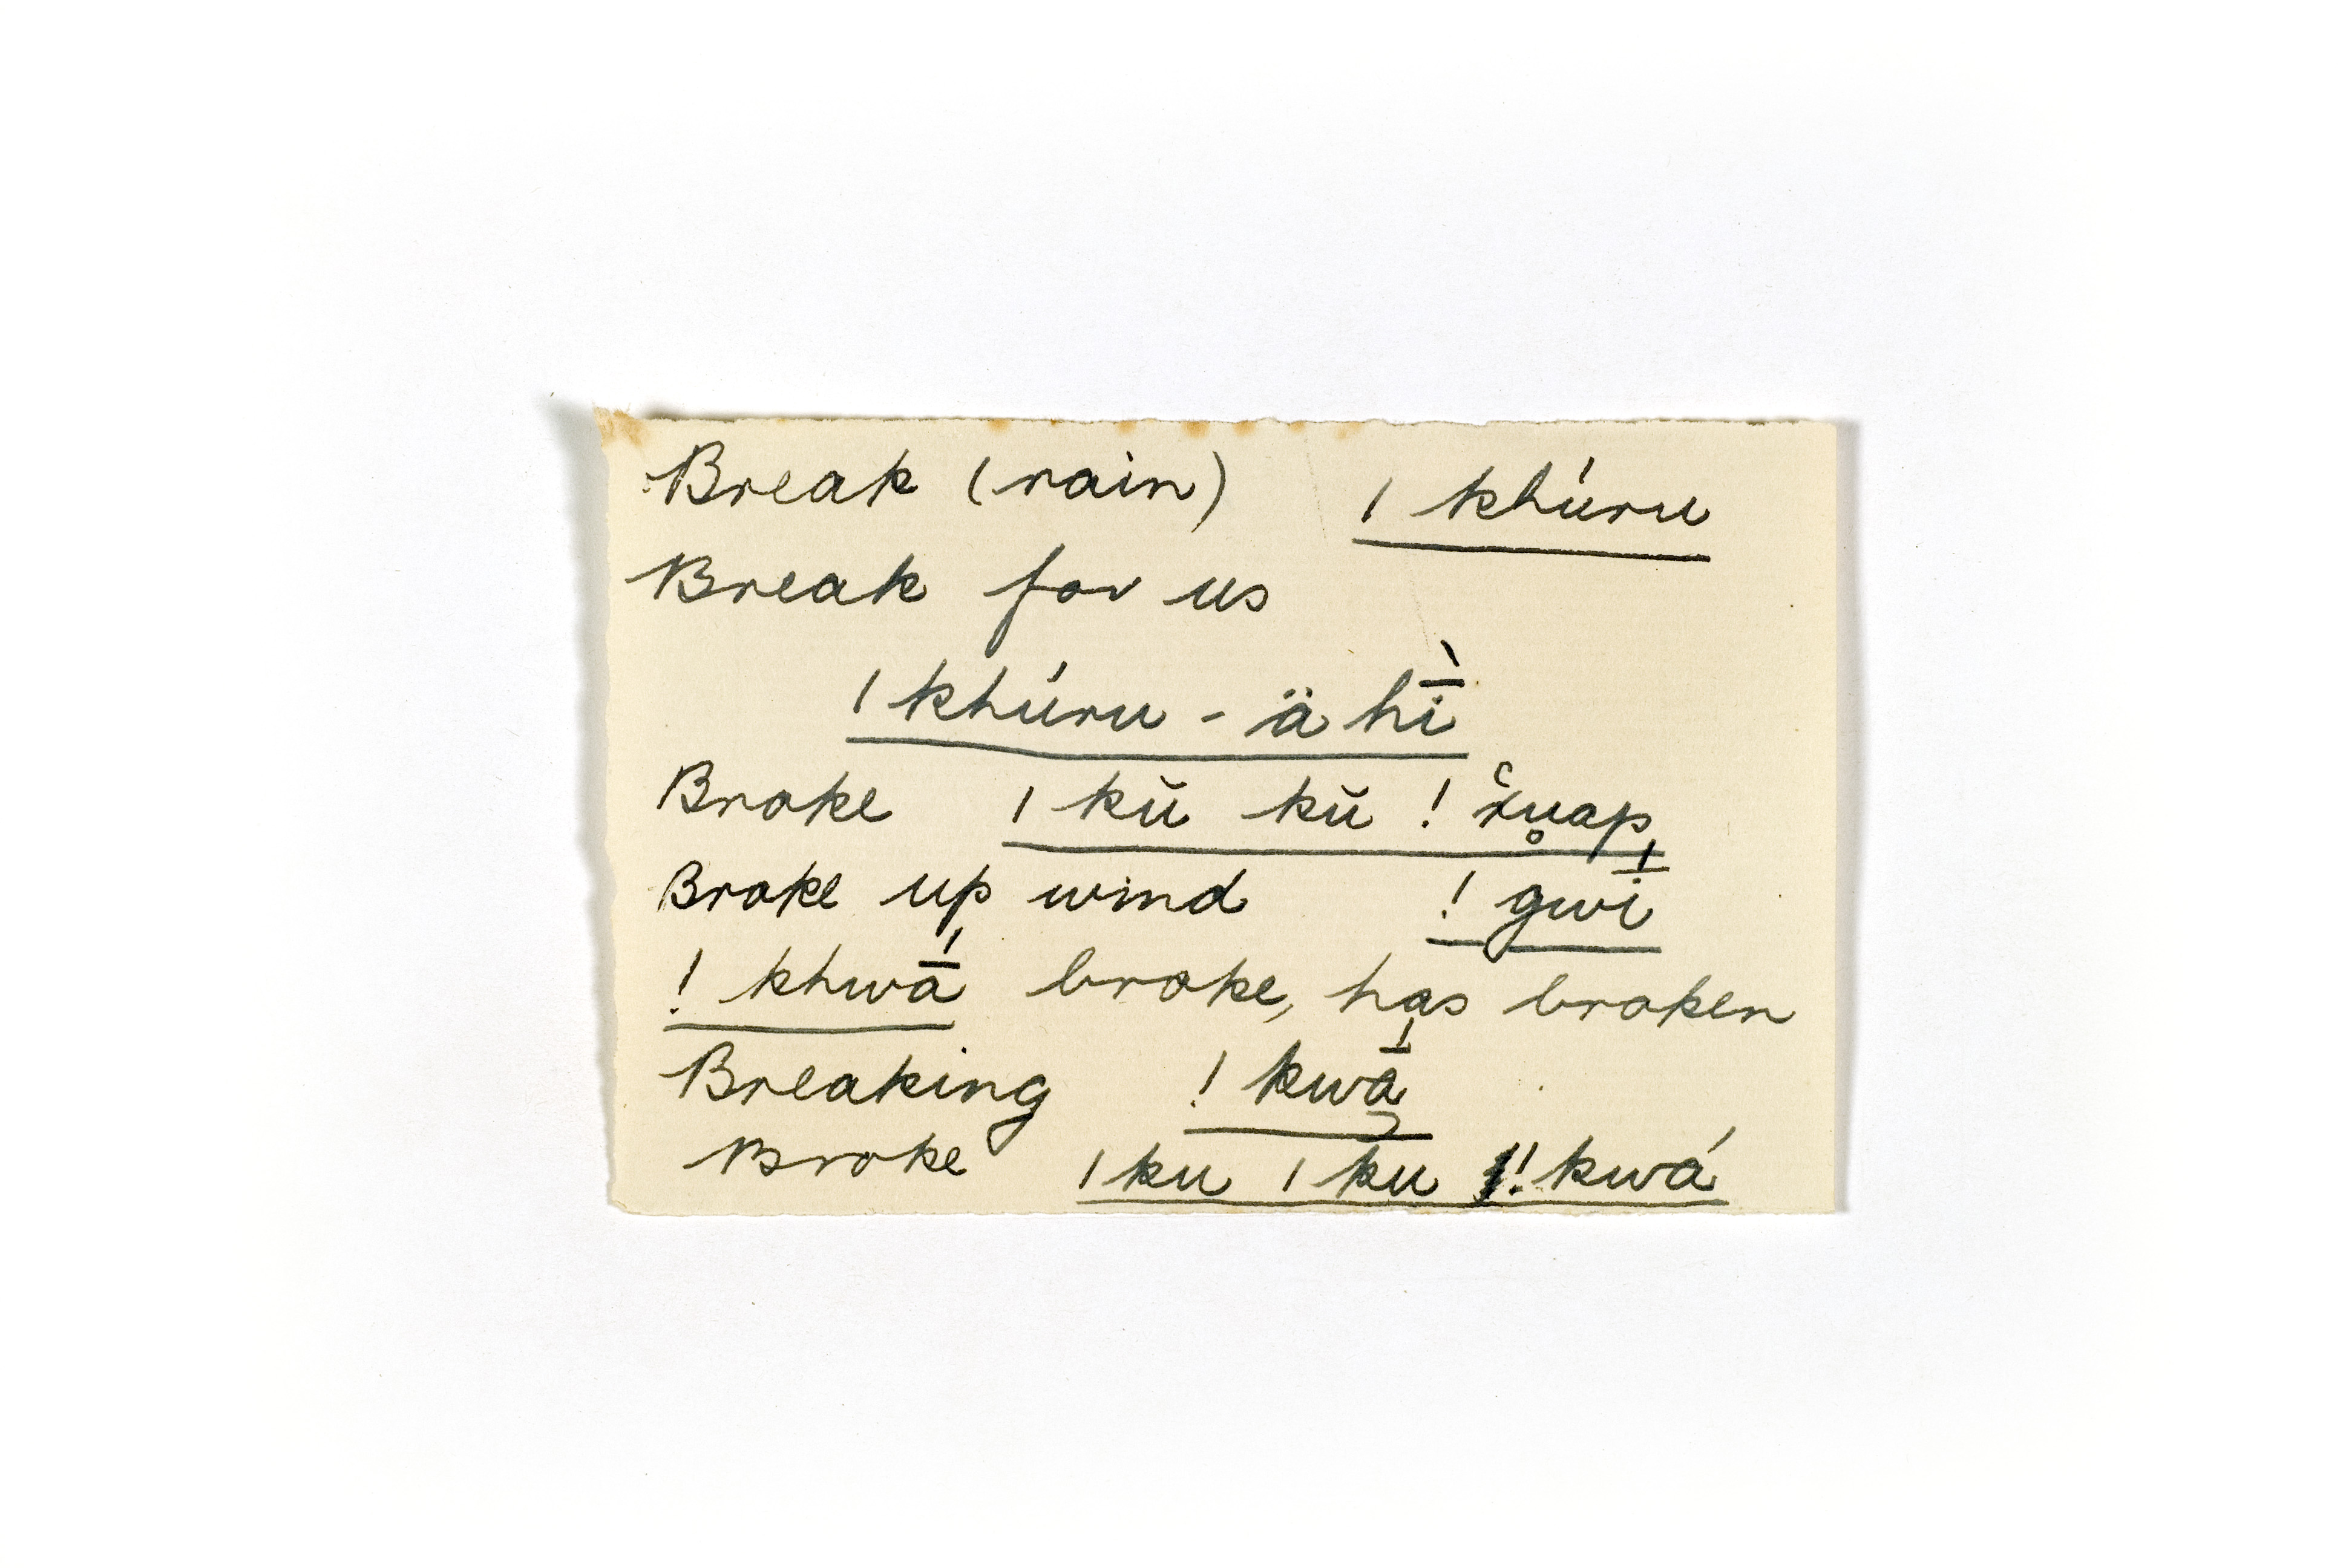 Break (rain) ǀ khúru
Break for us
ǀ khúru - ä hī̀
Broke ǀ kŭ kŭ ! x̔u̥ap
Broke up wind ! gwī́
! khwā́ broke, has broken
Breaking ! kwā̡́
Broke ǀ ku ǀ ku ! kwá